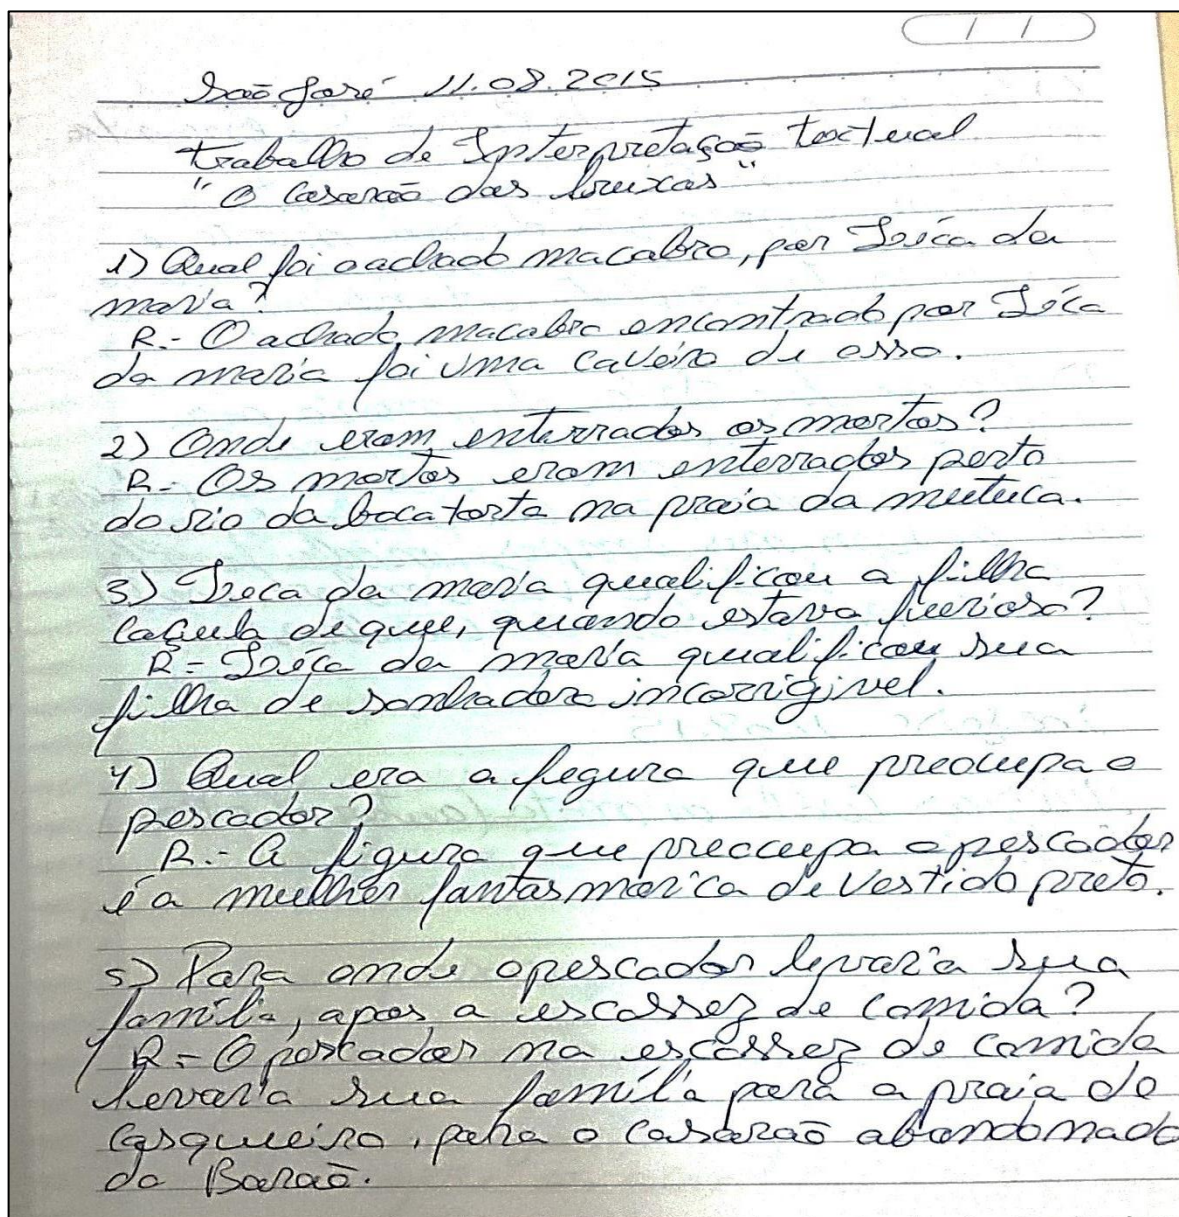 São José 11.08.2015
trabalho de Interpretação textual
"O casarão das bruxas"
1) Qual foi o achado macabro, por Iréca da
maria?
R.- O achado, macabro encontrado por Iéca
da maria foi uma caveira de osso.
2) Onde eram enterrados os mortos?
R- Os mortos eram enterrados perto
do rio da boca torta na praia da mutuca.
3) Ireca da maria qualificou a filha
caçula de que, quando estava furiosa?
R- Iréca da maria qualificou sua
filha de sonhadora incorrigivel.
4) Qual era a fegura que preocupa o
pescador?
R.- A figura que preocupa o pescador
é a mulher fantasmarica de vestido preto.
5) Para onde o pescador levaria sua
família, apos a escassez de comida?
R- O pescador na escassez de comida
levaria sua família para a praia do
casqueiro, para o casarão abandonado
do Barão.